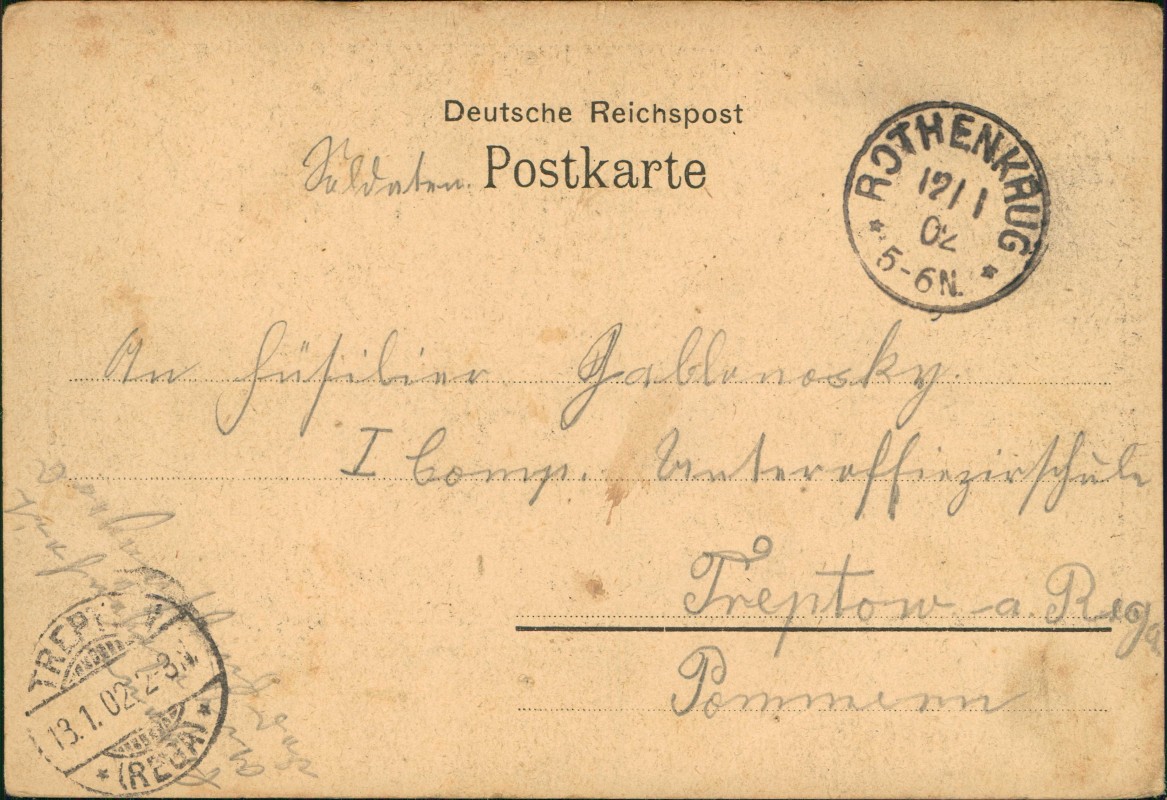 Deutsche Reichspost
Soldaten. Postkarte
ROTHENKRUG
12/1
02
* 5-6N. *
An Füsilier Jablonosky.
I Comp. Unteroffizirschule
Treptow a. Rega
Pommern
TREPTOW
13.1.02. 2-3N.
* (REGA) *